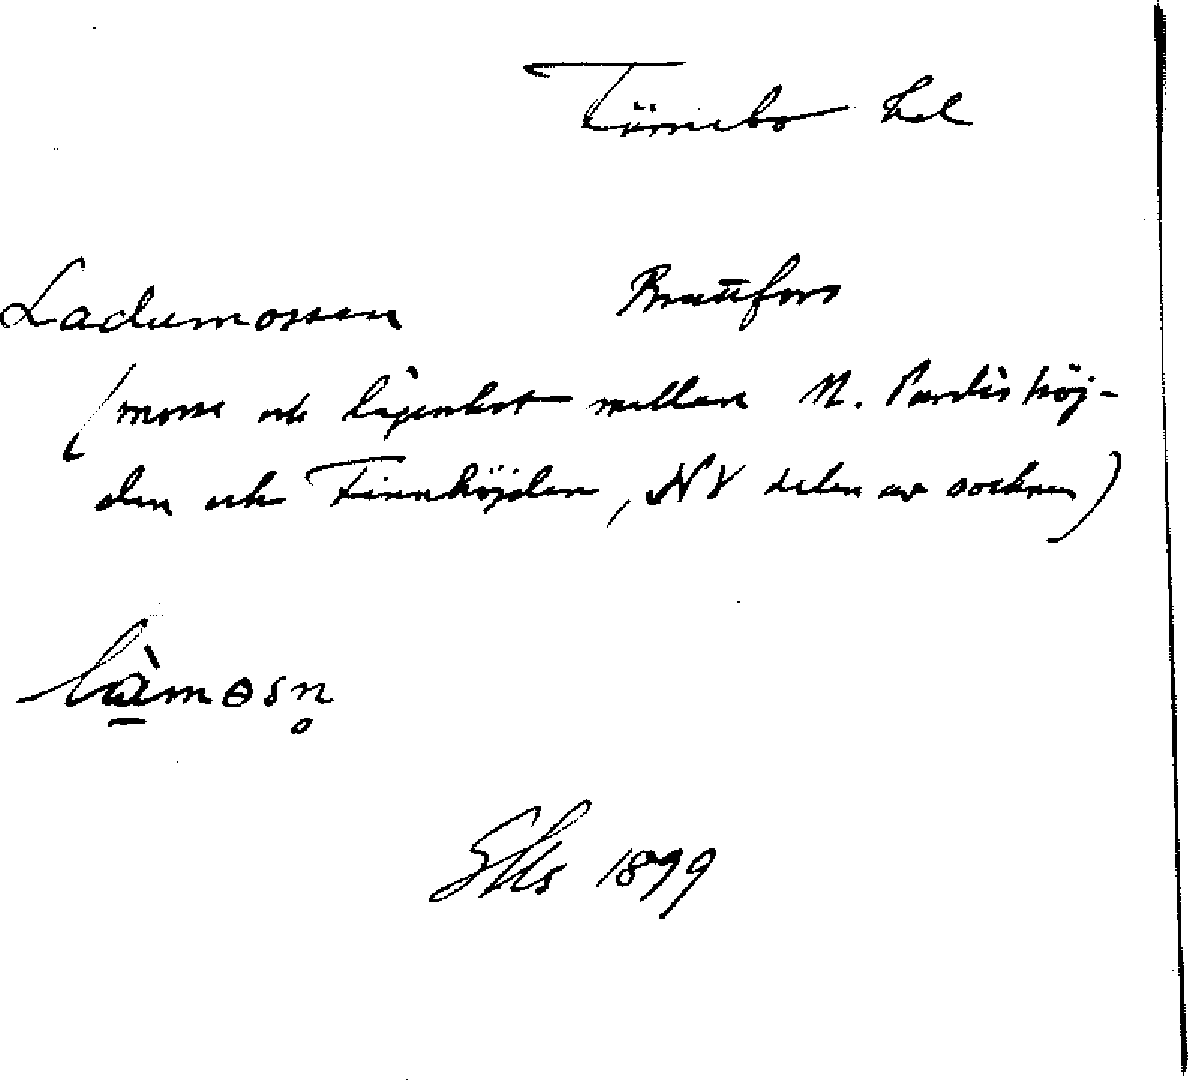 Färnebo hd
Ladumossen Brattfors
(mosse och lägenhet mellan N. Pardishöj-
den och Finnhöjden, NV delen av socknen)
làmosn
1899